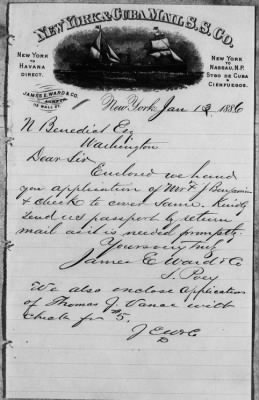 NEW YORK & CUBA MAIL S.S. CO.
NEW YORK
TO
HAVANA
DIRECT.
NEW YORK
TO
NASSAU, N.P.
STGO DE CUBA
&
CIENFUEGOS.
JAMES E. WARD & CO.
AGENTS
WALL ST.
New York Jan 12 1886
N Benedict Esq
Washington
Dear Sir
Enclosed we hand
you application of Mr F J Benjamin
& check to cover same. Kindly
send us passport by return
mail as it is needed promptly.
Yours very truly
James E Ward & Co
S. Posey
We also enclose application
of Thomas J. Vance with
check for $5.
J E W & Co